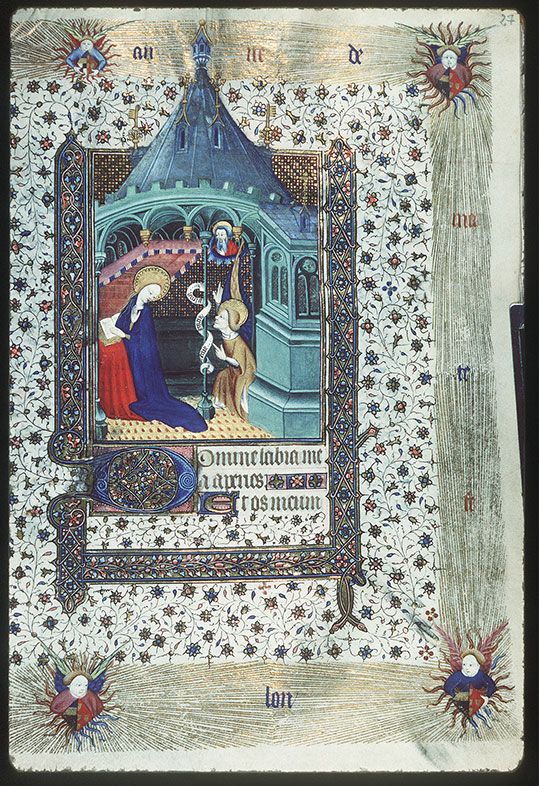 27
an ne de
ma
te
fe
lon
Domine labia me
a apries
Et os meum